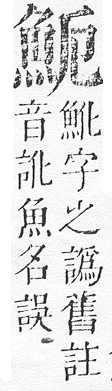 魤字之譌舊註
音訛魚名誤